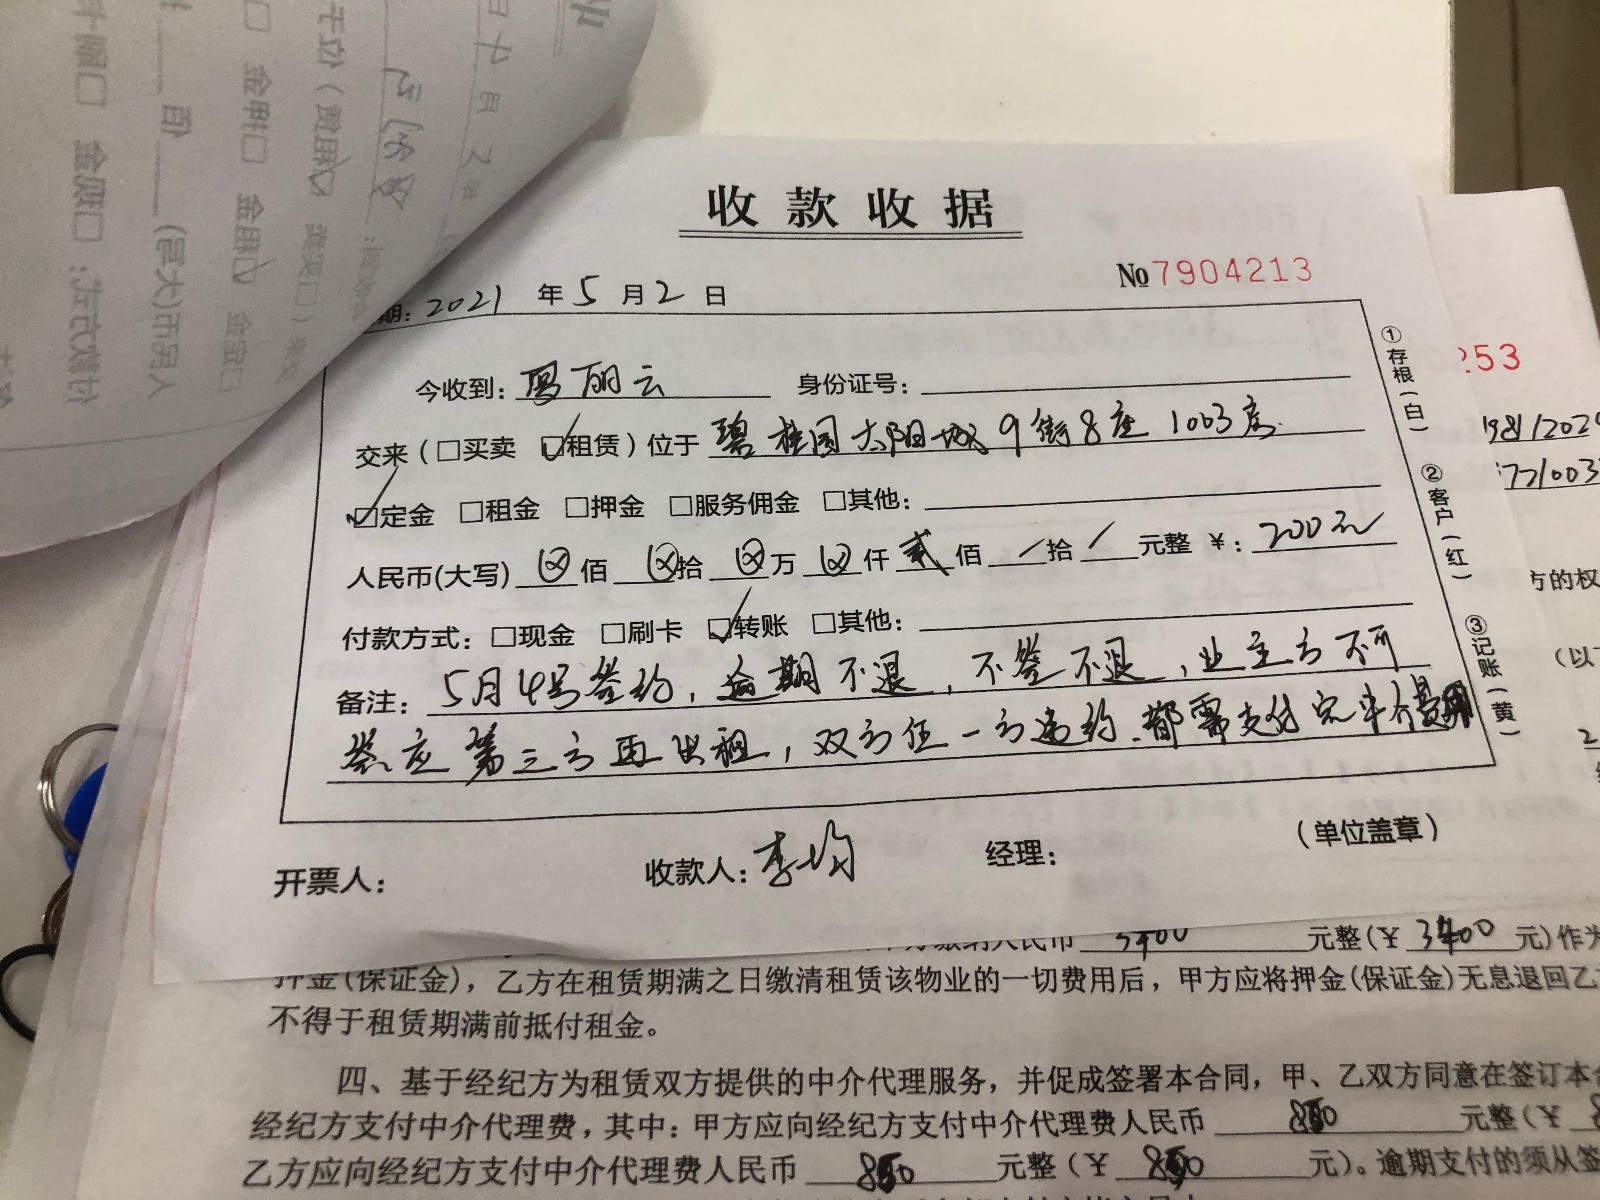 收款收据
No 7904213
期: 2021 年 5 月 2 日
今收到: 冯丽云 身份证号:
交来 (□买卖 ☑租赁) 位于 碧桂园太阳城9街8座1003房
☑定金 □租金 □押金 □服务佣金 □其他:
人民币(大写) ⊗ 佰 ⊗ 拾 ⊗ 万 ⊗ 仟 贰 佰 / 拾 / 元整 ¥: 200元
付款方式: □现金 □刷卡 ☑转账 □其他:
备注: 5月4号签约, 逾期不退, 不签不退, 业主方不可
答应第三方再出租, 双方任一方违约.都需支付完中介费用
开票人: 收款人: 李均 经理: (单位盖章)
①存根(白) ②客户(红) ③记账(黄)
253
方的权
(以下
缴纳人民币 3400 元整(¥ 3400 元)作为
押金(保证金), 乙方在租赁期满之日缴清租赁该物业的一切费用后, 甲方应将押金(保证金)无息退回乙
不得于租赁期满前抵付租金。
四、基于经纪方为租赁双方提供的中介代理服务, 并促成签署本合同, 甲、乙双方同意在签订本
经纪方支付中介代理费, 其中: 甲方应向经纪方支付中介代理费人民币 850 元整(¥
乙方应向经纪方支付中介代理费人民币 850 元整(¥ 850 元)。逾期支付的须从签